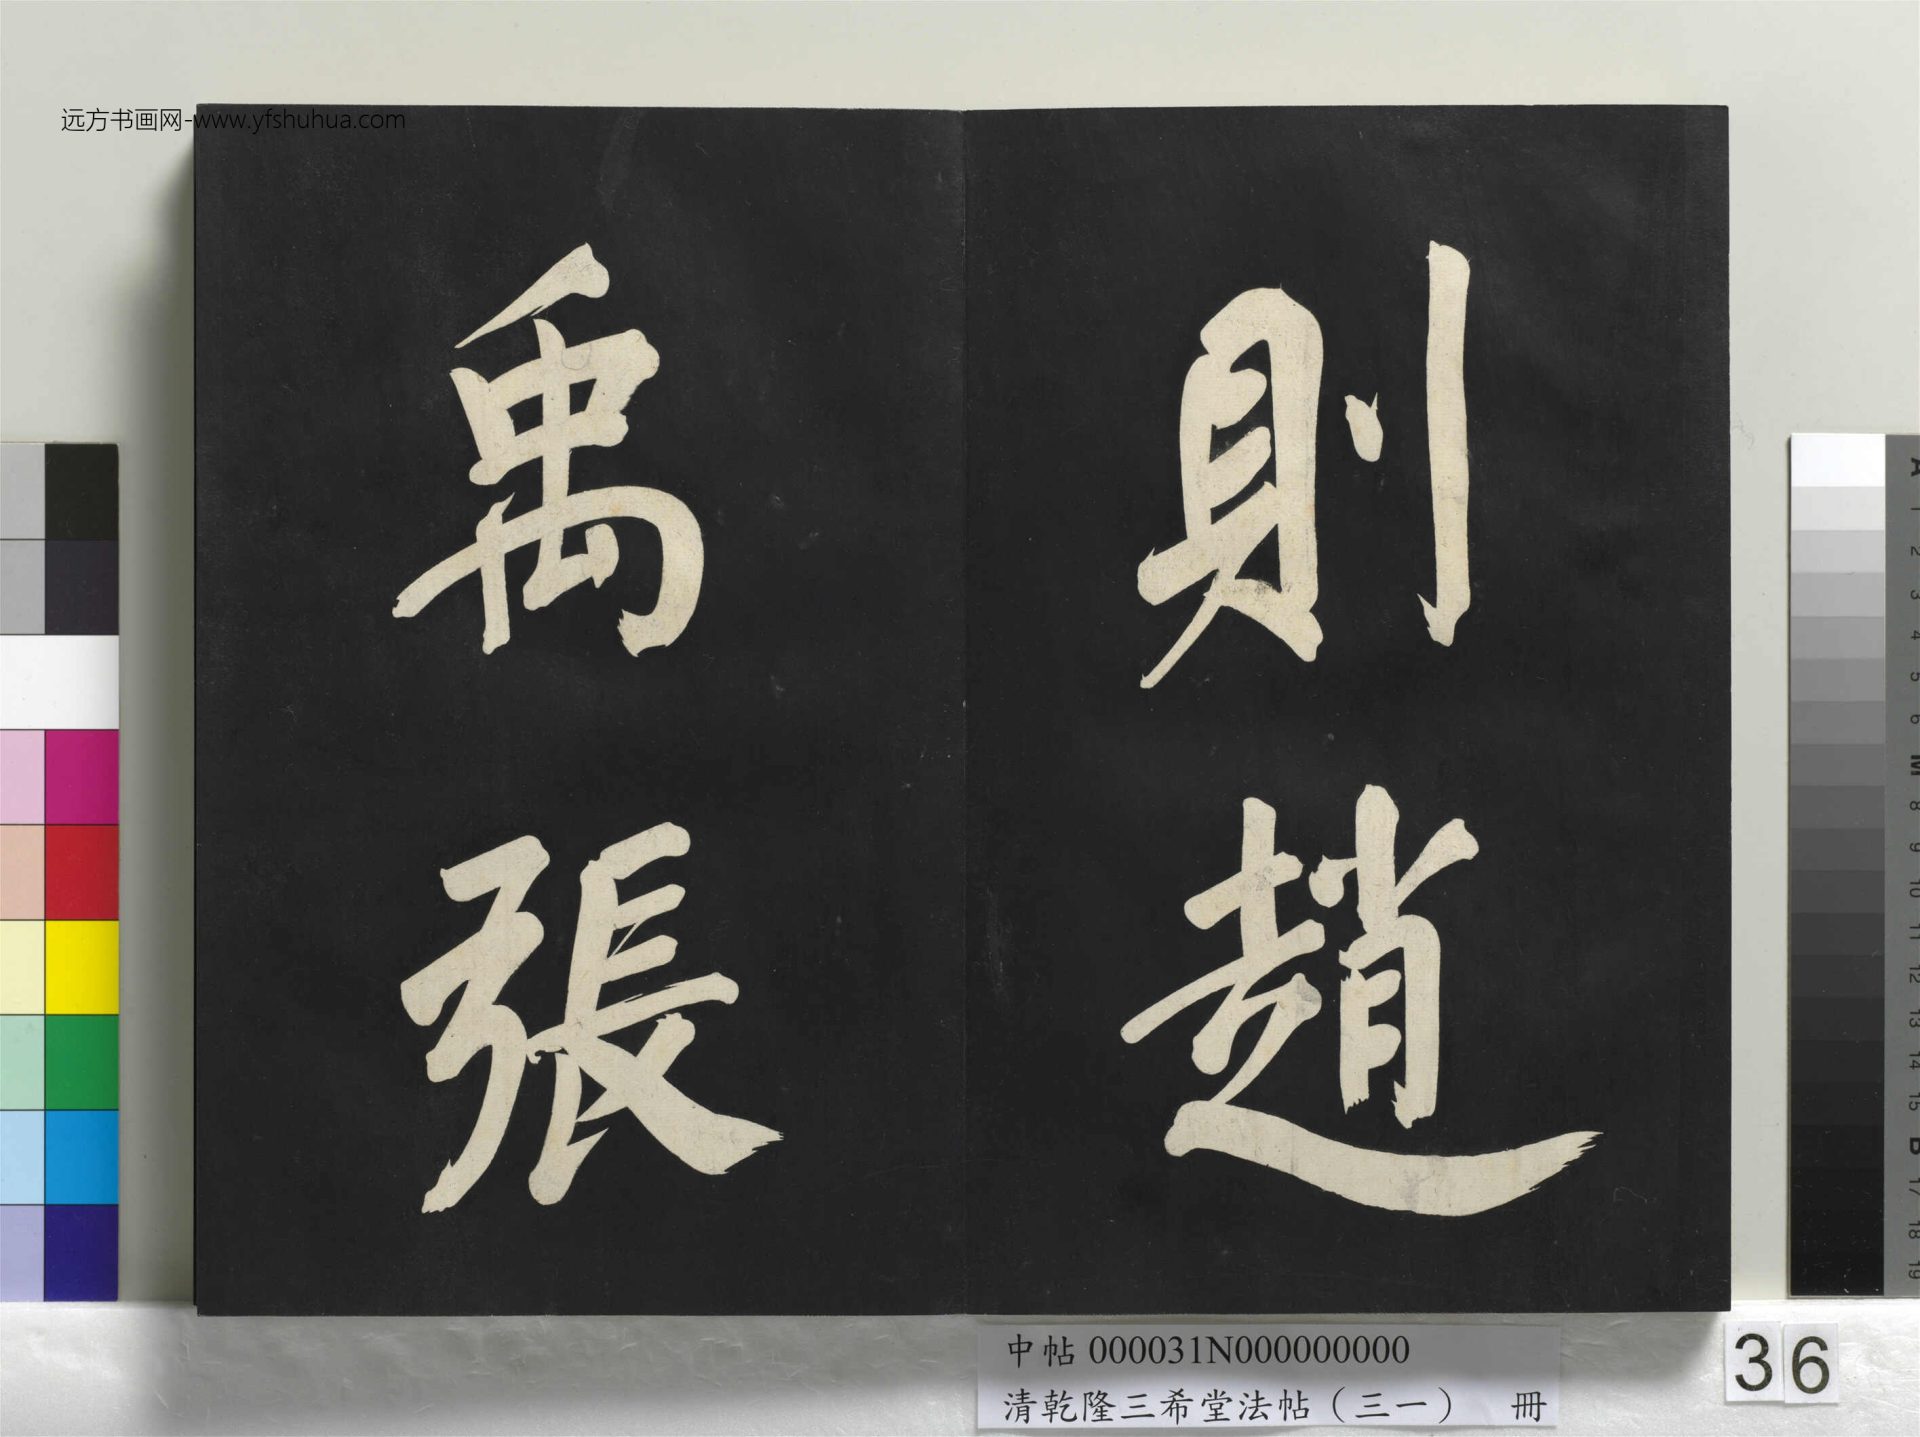 远方书画网-www.yfshuhua.com
則趙
禹張
中帖 000031N000000000
清乾隆三希堂法帖（三一） 冊
36
A 1 2 3 4 5 6 M 8 9 10 11 12 13 14 15 B 17 18 19